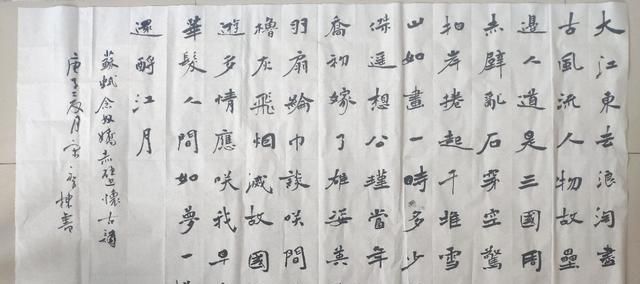 大江東去浪淘盡
古風流人物故壘
邊人道是三國周
赤壁亂石穿空驚
拍岸捲起千堆雪
山如畫一時多少
傑遙想公瑾當年
喬初嫁了雄姿英
羽扇綸巾談咲間
櫓灰飛烟滅故國
遊多情應咲我早
華髮人間如夢一
還酹江月
蘇軾念奴嬌赤壁懷古
庚子二月宋棟書